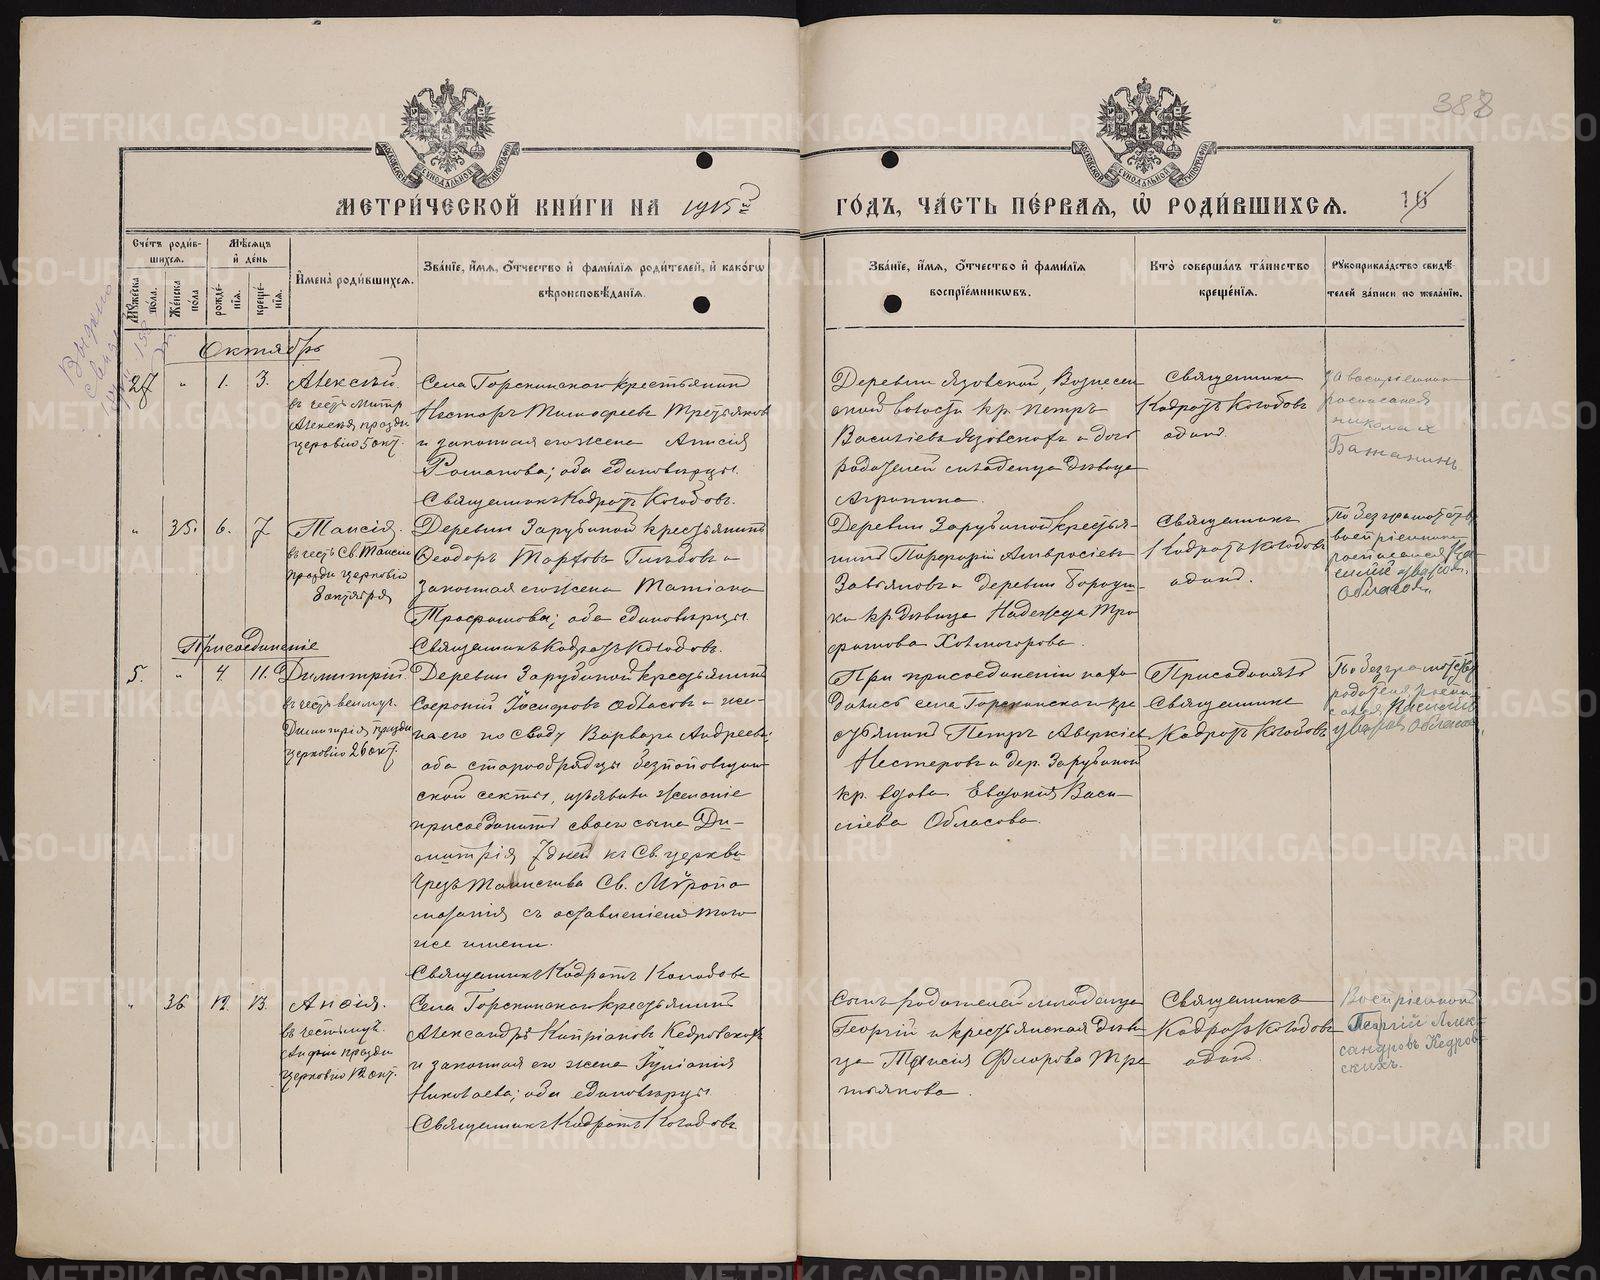 388
МЕТРИ́ЧЕСКОЙ КНИ́ГИ НА 1915й
ГО́ДЪ, ЧА́СТЬ ПЕ́РВАЯ, Ѡ РОДИ́ВШИХСЯ.
16
Сче́тъ роди́в-
шихся.
Мꙋ́жеска пола.
Же́нска пола
Мѣ́сяцъ
и де́нь
рожде́-
нія.
креще́-
нія.
Имена̀ роди́вшихся.
Зва́ніе, и́мя, о́тчество и фами́лія роди́телей, и како́гѡ
вѣроисповѣ́данія.
Зва́ніе, и́мя, о́тчество и фами́лія
воспріе́мниковъ.
Кто̀ соверша́лъ та́инство
креще́нія.
Рꙋкоприкла́дство свидѣ́-
телей за́писи по жела́нію.
Октябрь
27 " 1. 3.
Алексѣй.
въ честь митр
Алексѣя празд
церковію 5 окт.
Села Горскинскаго крестьянинъ
Несторъ Тимофеевъ Третьяковъ
и законная его жена Анисія
Романова; оба единовѣрцы.
Священникъ Кодратъ Колобовъ.
Деревни Язовской, Вознесен
ской волости кр. Петръ
Василіевъ Язовскихъ и дочь
родителей младенца дѣвица
Агрипина.
Священникъ
Кодратъ Колобовъ
одинъ.
За воспріемника
росписался
Николай
Бажанинъ
" 35. 6. 7
Таисія.
въ честь Св. Таисіи
празд церковію
8 октября
Деревни Зарубиной крестьянинъ
Ѳеодоръ Марковъ Глызовъ и
законная его жена Татіана
Трофимова; оба единовѣрцы.
Священникъ Кодратъ Колобовъ.
Деревни Зарубиной крестья-
нинъ Порфирій Амвросіевъ
Завьяловъ и деревни
кр. дѣвица Надежда Тро
фимова Холмогорова.
Священникъ
Кодратъ Колобовъ
одинъ.
По безграмотству
воспріемника
росписался
Обласовъ.
Присоединеніе
5. " 4. 11.
Димитрій.
въ честь велмуч.
Димитрія празд
церковію 26 окт.
Деревни Зарубиной крестьянинъ
Софроній Іосифовъ Обласовъ и же-
на его по своду Варвара Андреева;
оба старообрядцы безпоповщин-
ской секты, изъявили желаніе
присоединить своего сына Ди-
митрія 7 дней къ Св. церкви
чрезъ таинство Св. Мѵропо
мазанія съ оставленіемъ того
же имени.
Священникъ Кодратъ Колобовъ
При присоединеніи нахо
дились села Горскинскаго кре
стьянинъ Петръ Аверкіевъ
Нестеровъ и дер. Зарубиной
кр. вдова Евдокія Васи-
ліева Обласова.
Присоединялъ
Священникъ
Кодратъ Колобовъ
По безграмотству
родителя роспи
сался Василій
Уваровъ Обласовъ
" 36 12. 13.
Анѳія.
въ честь муч.
Анѳіи празд
церковію 12 окт.
Села Горскинскаго крестьянинъ
Александръ Кипріановъ Кедровскихъ
и законная его жена Іуліанія
Николаева; оба единовѣрцы.
Священникъ Кодратъ Колобовъ.
Сынъ родителей младенца
Георгій и крестьянская дѣви
ца Таисія Флорова Тре
тьякова.
Священникъ
Кодратъ Колобовъ
одинъ.
Воспріемникъ
Георгій Алек-
сандровъ Кедров-
скихъ.
METRIKI.GASO-URAL.RU